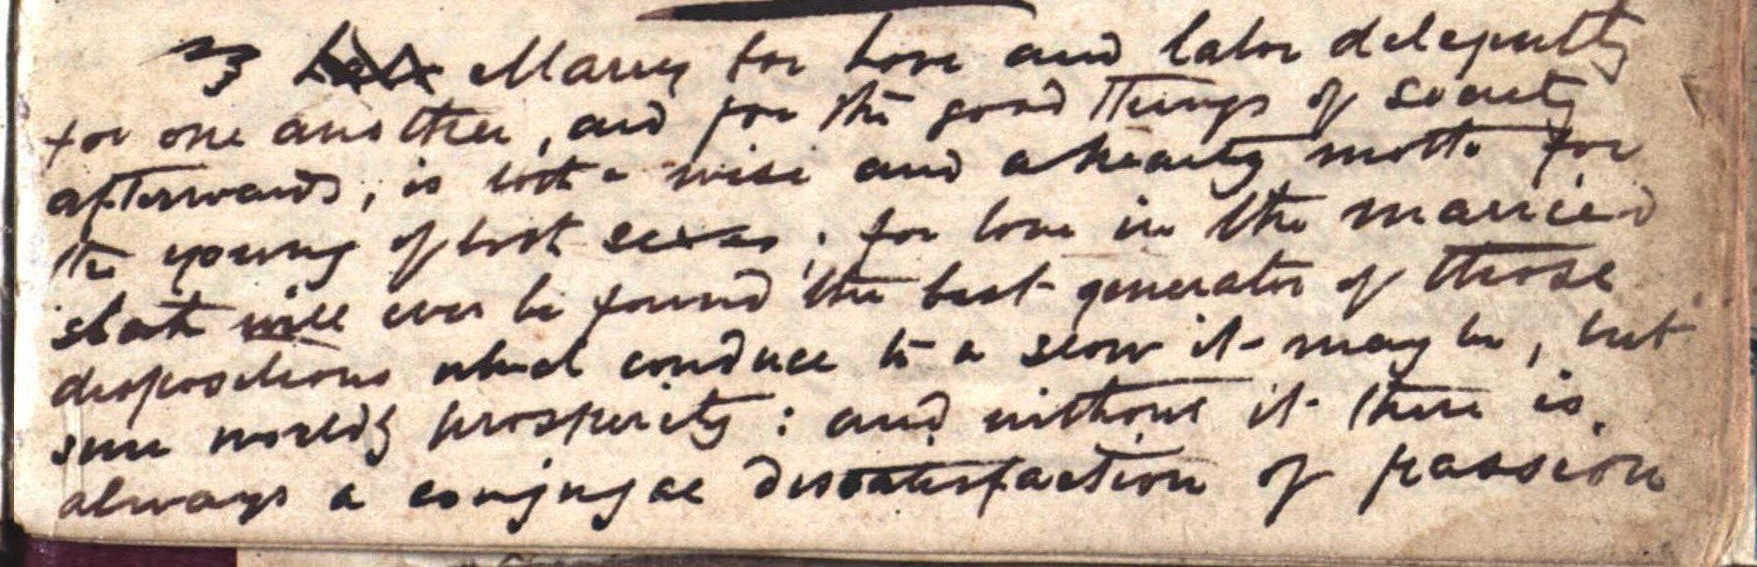 Marry for Love and labor deligently
for one another, and for the good things of society
afterwards, is both a wise and a hearty motto for
the young of both sexes; for love in the married
state will ever be found the best generator of those
dispositions which conduce to a slow it may be, but
sure worldly prosperity: and without it there is
always a conjugal dissatisfaction of passion